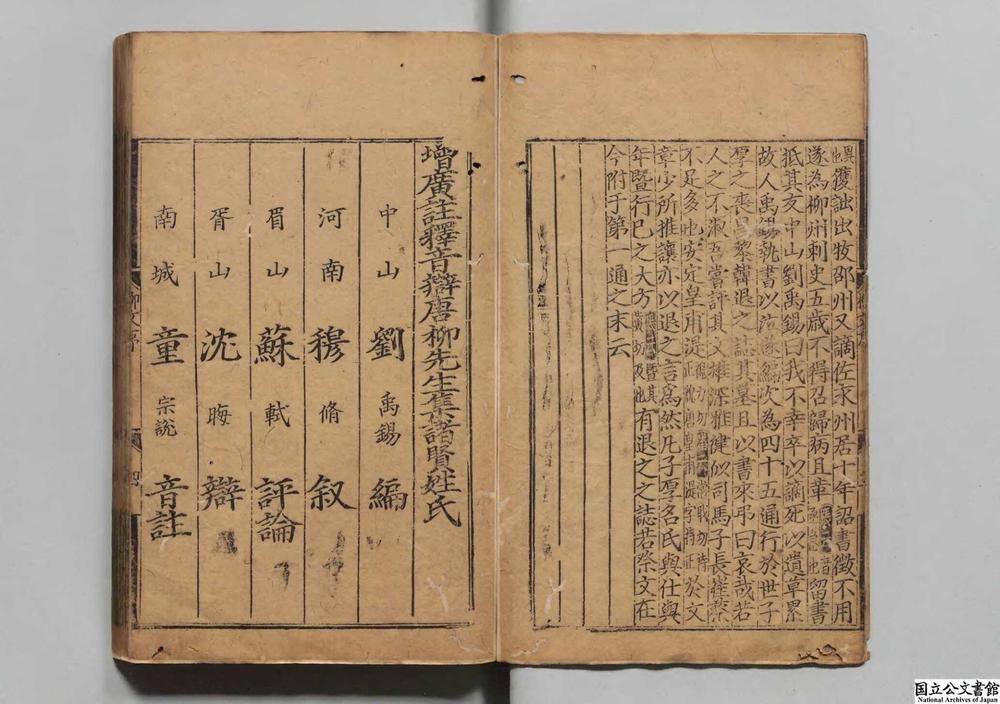 異也獲訕出牧邵州又謫佐永州居十年詔書徵不用
遂為柳州刺史五歲不得召歸病且革留書
抵其友中山劉禹錫曰我不幸卒以謫死以遺草累
故人禹錫執書以泣遂編次為四十五通行於世子
厚之喪昌黎韓退之誌其墓且以書來弔曰哀哉若
人之不淑吾嘗評其文雄深雅健似司馬子長崔蔡
不足多也安定皇甫湜於文
章少所推讓亦以退之言爲然凡子厚名氏與仕與
年暨行已之大方有退之之誌若祭文在
今附于第一通之末云
增廣註釋音辯唐柳先生集諸賢姓氏
中山劉禹錫編
河南穆脩叙
眉山蘇軾評論
胥山沈晦辯
南城童宗說音註
柳文序
国立公文書館
National Archives of Japan